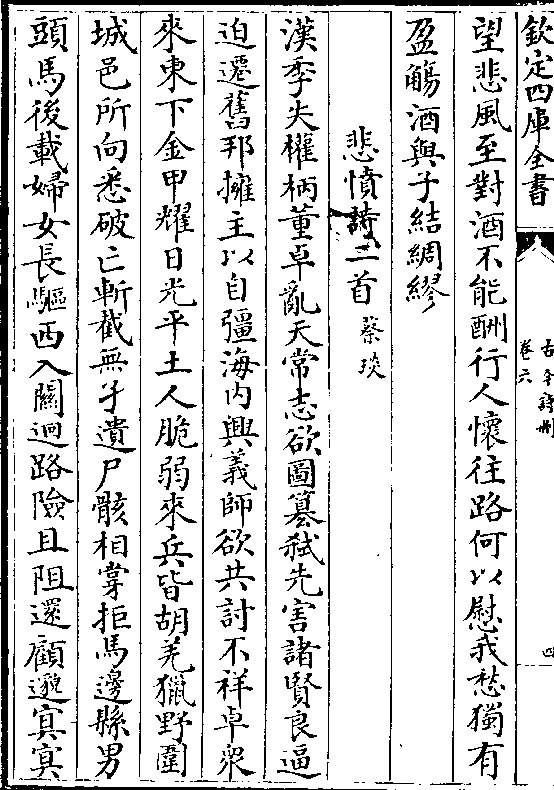 欽定四庫全書
古今詩刪
卷六
四
望悲風至對酒不能酬行人懷往路何以慰我愁獨有
盈觴酒與子結綢繆
悲憤詩二首 蔡琰
漢季失權柄董卓亂天常志欲圖篡弑先害諸賢良逼
迫遷舊邦擁主以自彊海內興義師欲共討不祥卓衆
來東下金甲耀日光平土人脆弱來兵皆胡羌獵野圍
城邑所向悉破亡斬截無孑遺尸骸相掌拒馬邊縣男
頭馬後載婦女長驅西入關迥路險且阻還顧邈㝠㝠